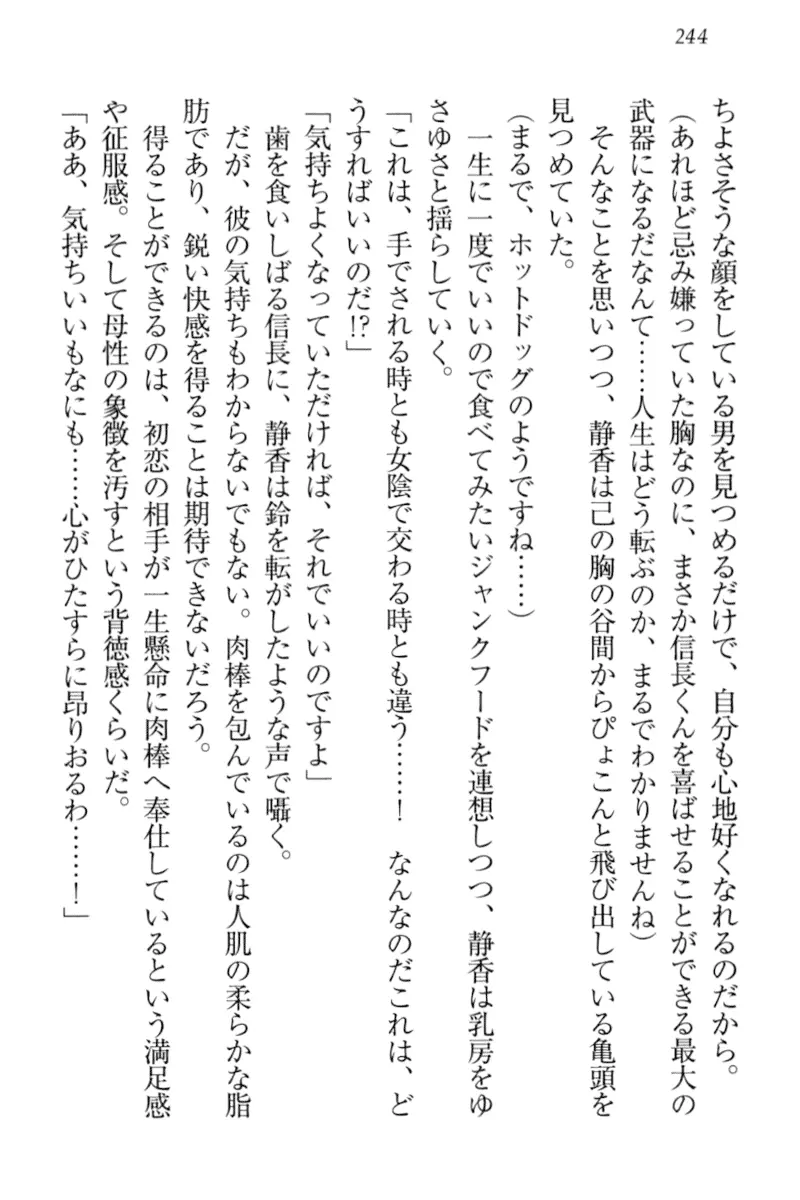 244
ちよさそうな顔をしている男を見つめるだけで、自分も心地好くなれるのだから。
(あれほど忌み嫌っていた胸なのに、まさか信長くんを喜ばせることができる最大の
武器になるだなんて……人生はどう転ぶのか、まるでわかりませんね)
そんなことを思いつつ、静香は己の胸の谷間からぴょこんと飛び出している亀頭を
見つめていた。
(まるで、ホットドッグのようですね……)
一生に一度でいいので食べてみたいジャンクフードを連想しつつ、静香は乳房をゆ
さゆさと揺らしていく。
「これは、手でされる時とも女陰で交わる時とも違う……! なんなのだこれは、ど
うすればいいのだ!?」
「気持ちよくなっていただければ、それでいいのですよ」
歯を食いしばる信長に、静香は鈴を転がしたような声で囁く。
だが、彼の気持ちもわからないでもない。肉棒を包んでいるのは人肌の柔らかな脂
肪であり、鋭い快感を得ることは期待できないだろう。
得ることができるのは、初恋の相手が一生懸命に肉棒へ奉仕しているという満足感
や征服感。そして母性の象徴を汚すという背徳感くらいだ。
「ああ、気持ちいいもなにも……心がひたすらに昂りおるわ……!」